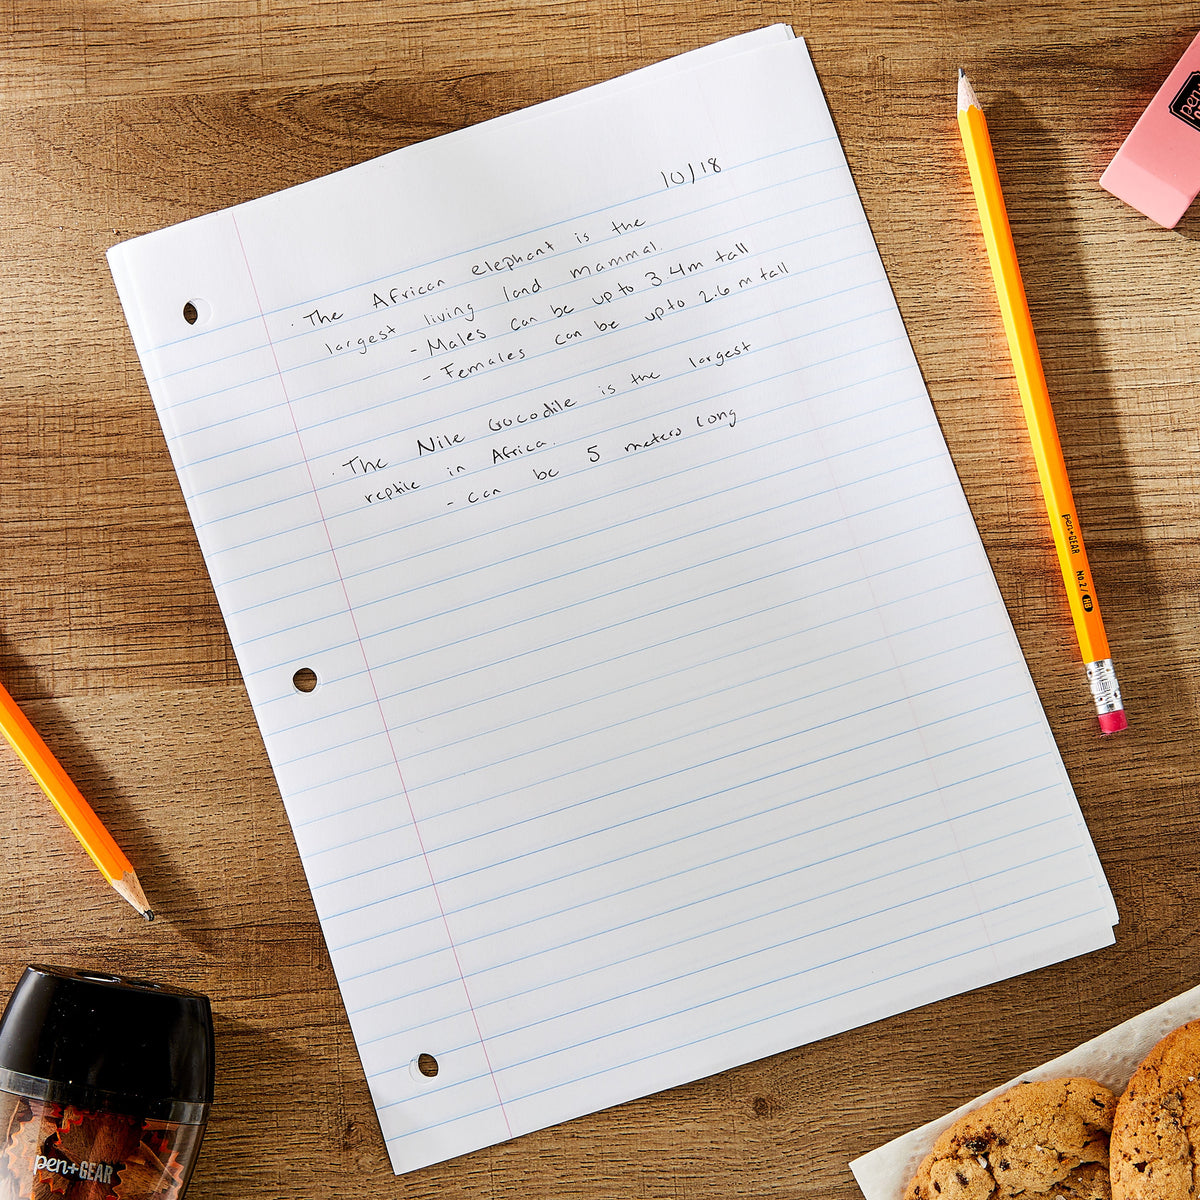 10/18
· The African elephant is the
largest living land mammal.
- Males can be up to 3.4m tall
- Females can be up to 2.6 m tall
· The Nile Crocodile is the largest
reptile in Africa.
- can be 5 meters long
pen+GEAR No. 2/ HB
pen+GEAR